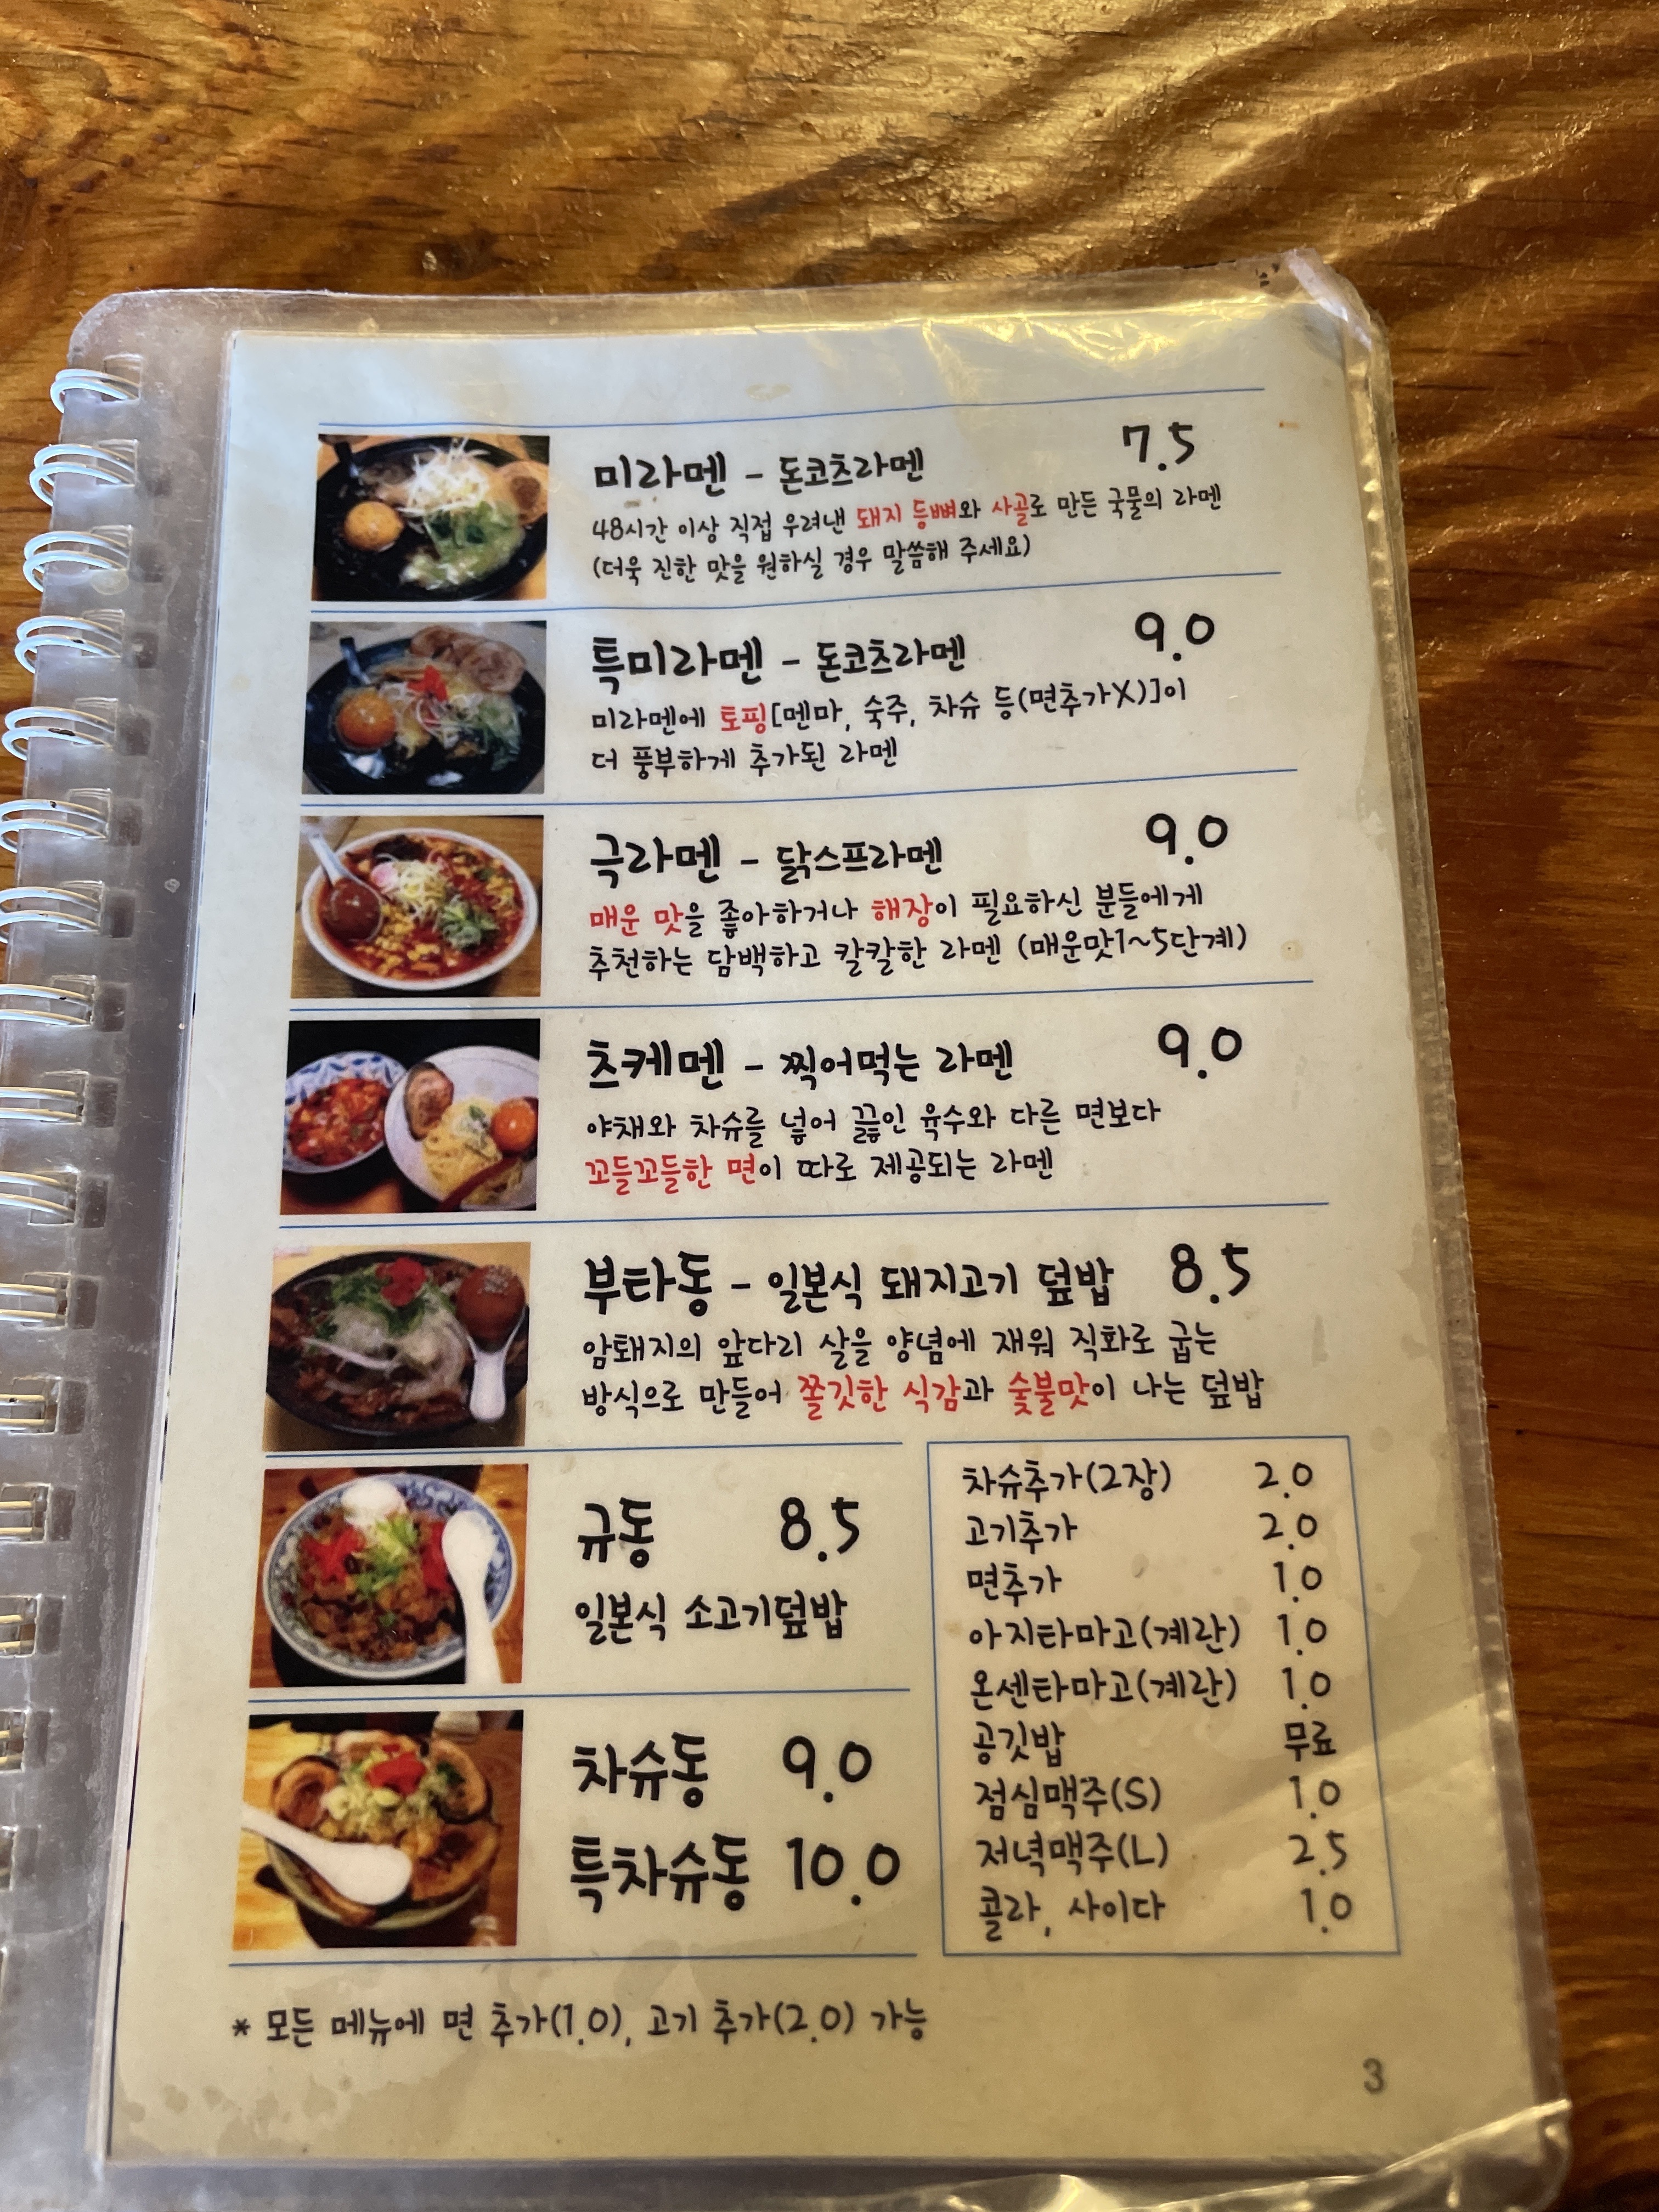 미라멘 - 돈코츠라멘 7.5
48시간 이상 직접 우려낸 돼지 등뼈와 사골로 만든 국물의 라멘
(더욱 진한 맛을 원하실 경우 말씀해 주세요)
특미라멘 - 돈코츠라멘 9.0
미라멘에 토핑[멘마, 숙주, 차슈 등(면추가X)]이
더 풍부하게 추가된 라멘
극라멘 - 닭스프라멘 9.0
매운 맛을 좋아하거나 해장이 필요하신 분들에게
추천하는 담백하고 칼칼한 라멘 (매운맛1~5단계)
츠케멘 - 찍어먹는 라멘 9.0
야채와 차슈를 넣어 끓인 육수와 다른 면보다
꼬들꼬들한 면이 따로 제공되는 라멘
부타동 - 일본식 돼지고기 덮밥 8.5
암퇘지의 앞다리 살을 양념에 재워 직화로 굽는
방식으로 만들어 쫄깃한 식감과 숯불맛이 나는 덮밥
규동 8.5
일본식 소고기덮밥
차슈동 9.0
특차슈동 10.0
차슈추가(2장) 2.0
고기추가 2.0
면추가 1.0
아지타마고(계란) 1.0
온센타마고(계란) 1.0
공깃밥 무료
점심맥주(S) 1.0
저녁맥주(L) 2.5
콜라, 사이다 1.0
* 모든 메뉴에 면 추가(1.0), 고기 추가(2.0) 가능
3